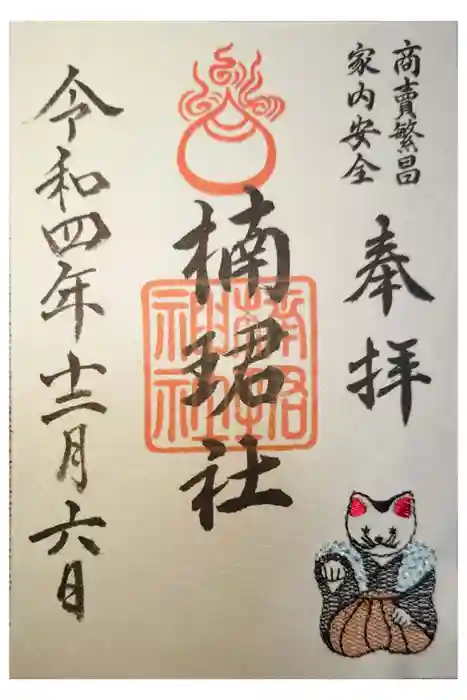 商賣繁昌
家内安全
奉拝
楠珺社
令和四年十二月六日